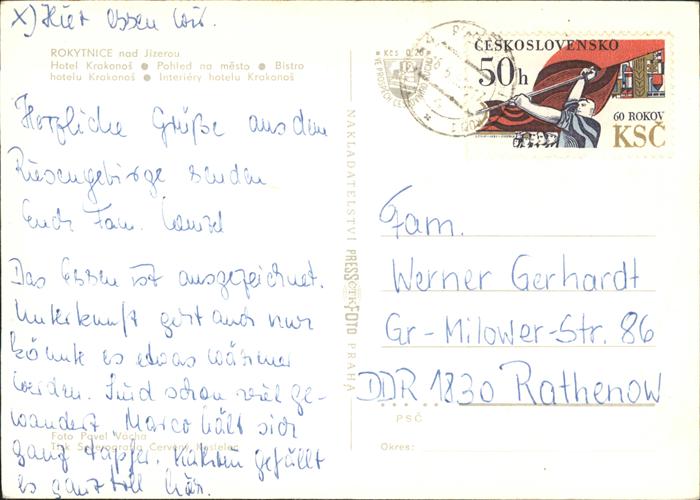 x) Hier essen wir.
ROKYTNICE nad Jizerou
Hotel Krakonoš ● Pohled na město ● Bistro
hotelu Krakonoš ● Interiéry hotelu Krakonoš
Herzliche Grüße aus dem
Riesengebirge senden
Euch Fam.
Das Essen ist ausgezeichnet.
Unterkunft gut auch nur
könnte es etwas wärmer
werden. Sind schon viel ge-
wandert. Marco hält sich
ganz tapfer. gefällt
es ganz toll hier.
Foto Pavel Vácha
Tisk Severografia Červený Kostelec
NAKLADATELSTVÍ PRESSFOTO PRAHA
Kčs 0,20
ČESKOSLOVENSKO
50h
60 ROKOV
KSČ
Fam.
Werner Gerhardt
Gr-Milower-Str. 86
DDR 1830 Rathenow
PSČ
Okres: